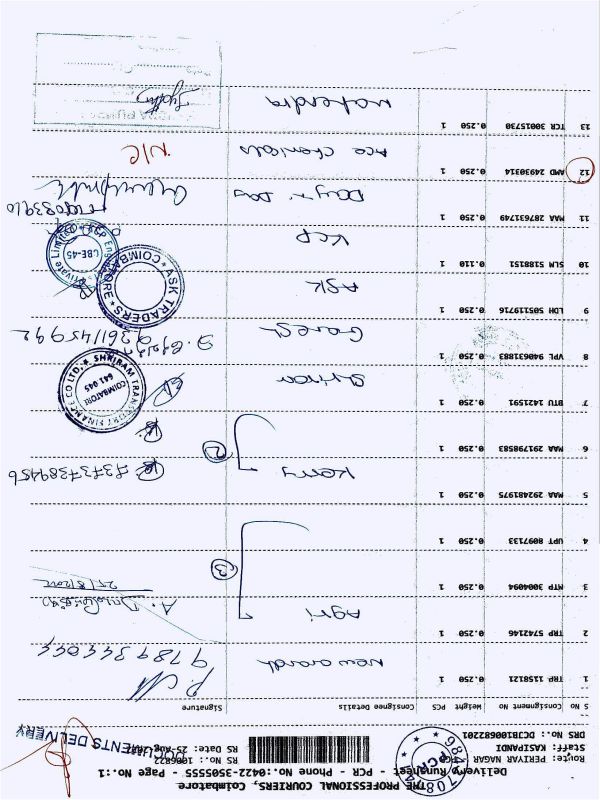 THE PROFESSIONAL COURIERS, Coimbatore
Delivery Runsheet - PCR - Phone No.:0422-3505555 - Page No.:1
Route: PERIYAR NAGAR - PCR
Staff: KASIPANDI
DRS No.: DCTB100682201
RS No.: 1006822
RS Date: 25-Aug-2022
DOCUMENTS DELIVERY
S No Consignment No Weight PCS Consignee Details Signature
1 TRP 1158121 0.250 1 New anandh 9789344064
2 TRP 5742146 0.250 1 Agri A.
3 MTP 3004094 0.250 1 3 25/8/2022
4 UPT 8097133 0.250 1
5 MAA 292481975 0.250 1 Kerry 7373789456
6 MAA 291798583 0.250 1 2
7 BTU 1421591 0.250 1 Sriram
SHRIRAM TRANSPORT FINANCE CO LTD. COIMBATORE 641 045
8 VPL 940631883 0.250 1 9361145992
9 LDH 505119716 0.250 1 ASK
ASK TRADERS COIMBATORE
10 SLM 5188151 0.110 1 KCP
Private Limited KCP CBE-45
11 MAA 287631749 0.250 1
12 AMD 24930314 0.250 1 Ace Chemicals N/C
13 TCR 30015730 0.250 1 Mahendra